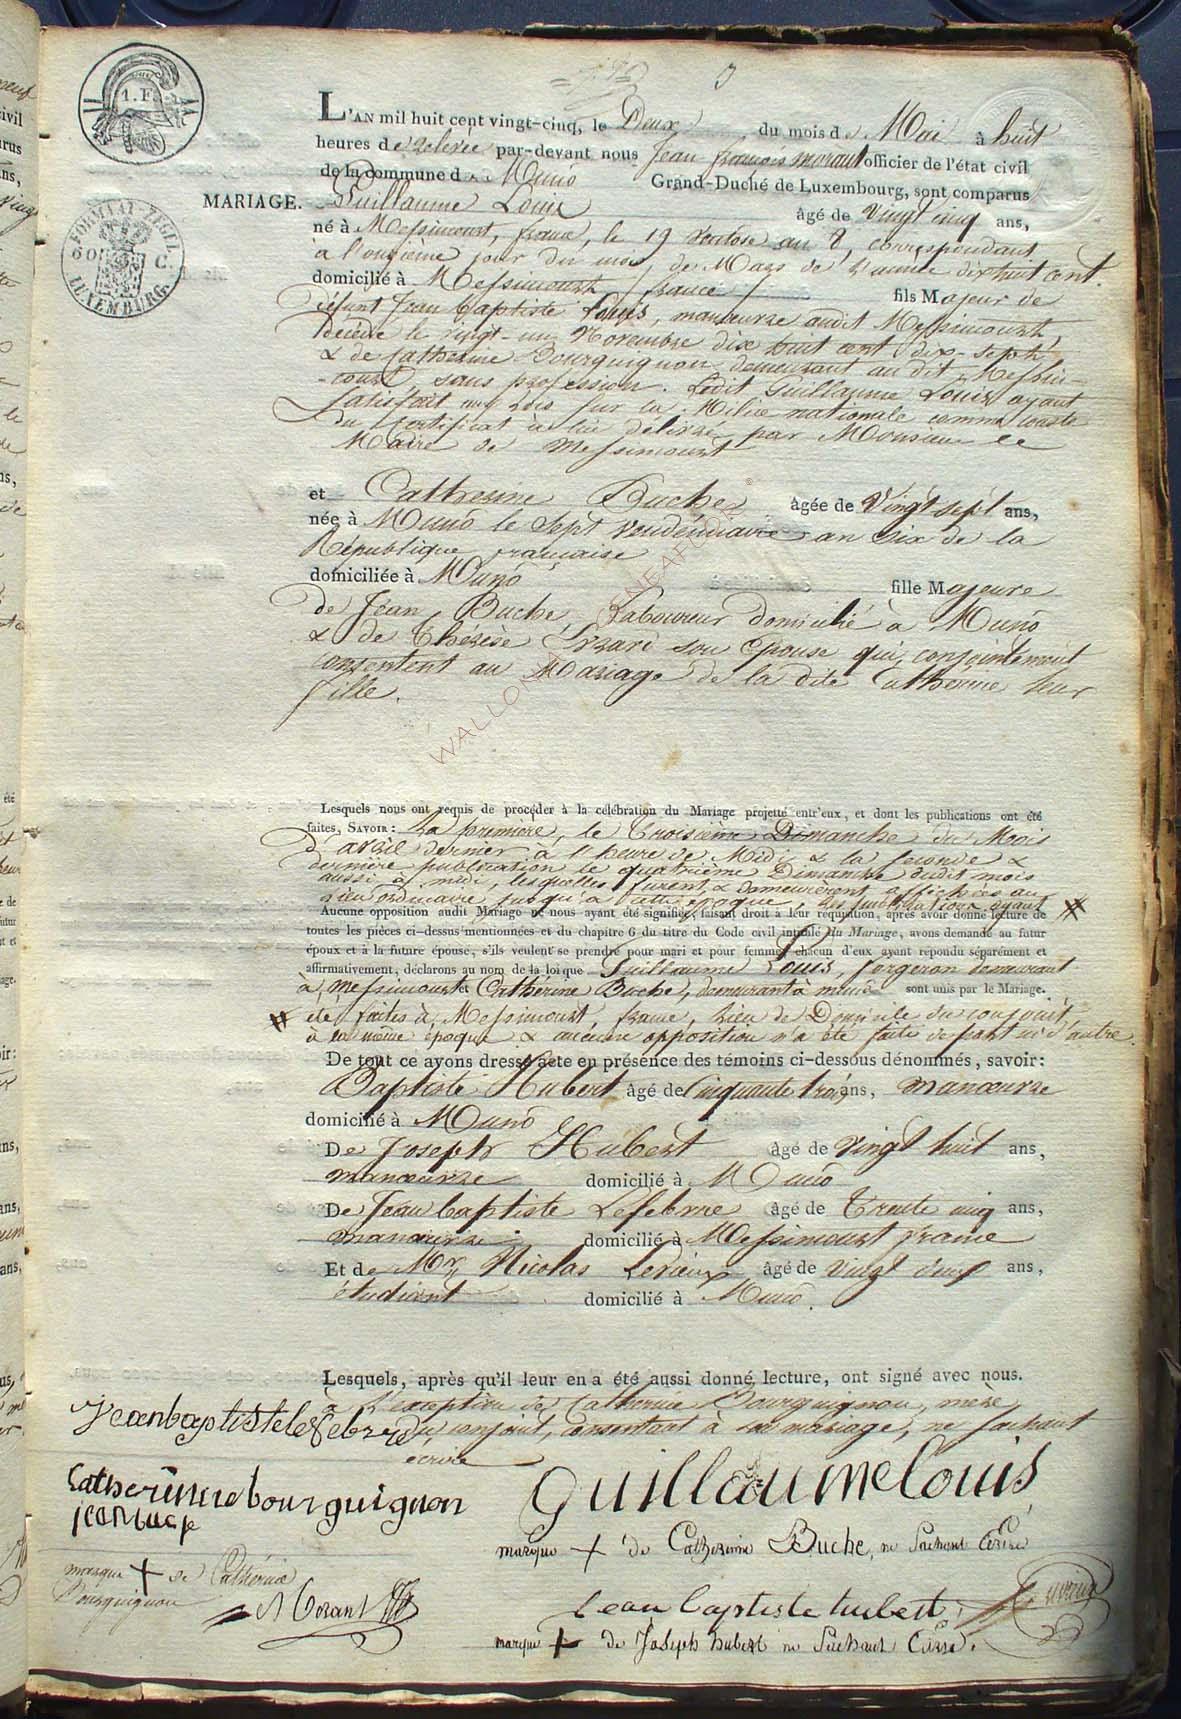 1. F.
FORMAAT-ZEGEL
60 C.
LUXEMBURG.
MARIAGE.
L'AN mil huit cent vingt-cinq, le Deux du mois de Mai à huit
heures de relevée par-devant nous Jean françois morant officier de l'état civil
de la commune de Muno Grand-Duché de Luxembourg, sont comparus
Guillaume Louis âgé de vingt cinq ans,
né à Messincourt, france, le 19 ventose an 8, correspondant
à l'onzième jour du mois de Mars de l'année dix huit cent.
domicilié à Messincourt, france fils Majeur de
défunt Jean Baptiste Louis, manœuvre audit Messincourt,
décédé le vingt-un Novembre dix huit cent dix-sept,
& de Catherine Bourguignon demeurant au dit Messin-
-court, sans profession. Ledit Guillaume Louis ayant
satisfait aux lois sur la Milice nationale comme conste
du certificat a lui délivré par Monsieur le
Maire de Messincourt
et Catherine Buche âgée de Vingt sept ans,
née à Muno le sept vendémiaire an six de la
République française
domiciliée à Muno fille Majeure
de Jean Buche, Laboureur domicilié à Muno
& de Thérèse son Epouse qui conjointement
consentent au Mariage de la dite Cathérine leur
fille.
Lesquels nous ont requis de procéder à la célébration du Mariage projetté entr'eux, et dont les publications ont été
faites, SAVOIR: La première, le troisième Dimanche du Mois
d'avril dernier à l'heure de Midi & la seconde &
dernière publication le quatrième Dimanche dudit mois
aussi à midi, lesquelles furent & demeurèrent affichées au
lieu ordinaire jusqu'à cette époque, les publications ayant #
Aucune opposition audit Mariage ne nous ayant été signifiée, faisant droit à leur réquisition, après avoir donné lecture de
toutes les pièces ci-dessus mentionnées et du chapitre 6 du titre du Code civil intitulé du Mariage, avons demandé au futur
époux et à la future épouse, s'ils veulent se prendre pour mari et pour femme; chacun d'eux ayant répondu séparément et
affirmativement, déclarons au nom de la loi que Guillaume Louis, forgeron demeurant
à Messincourt et Cathérine Buche, demeurant à muno sont unis par le Mariage.
# été faites à Messincourt, france, lieu de Domicile du conjoint
à la même époque & aucune opposition n'a été faite de part ni d'autre.
De tout ce ayons dressé acte en présence des témoins ci-dessous dénommés, savoir:
Baptiste Hubert âgé de Cinquante trois ans, manœuvre
domicilié à Muno
De Joseph Hubert âgé de vingt huit ans,
manœuvre domicilié à Muno
De Jean baptiste Lefebvre âgé de Trente cinq ans,
manœuvre domicilié à Messincourt france
Et de Mr. Nicolas Lerieux âgé de vingt deux ans,
étudiant domicilié à Muno.
Lesquels, après qu'il leur en a été aussi donné lecture, ont signé avec nous.
à l'exception de Catherine Bourguignon, mère
du conjoint, consentant à son mariage, ne sachant
écrire
jeanbaptistelefebvre
Catherinne bourguignon
jean buche
Guillaume Louis
marque + de Catherine Buche, ne Sachant Ecrire
marque + de Cathérine
Bourguignon
Morant
Jean baptiste hubert
marque + de Joseph hubert ne Sachant Ecrire.
WALLONIA